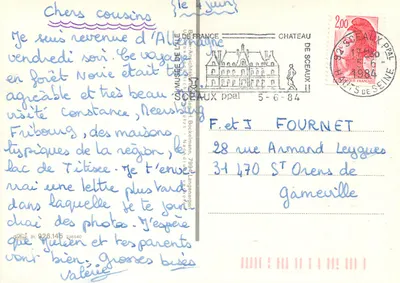 le 4 juin
Chers cousins
Je suis revenue d'Allemagne
vendredi soir. Ce voyage
en forêt Noire était très
agréable et très beau. J'ai
visité Constance, Meersburg
Fribourg, des maisons
typiques de la région, le
lac de Titisee. Je t'enver
rai une lettre plus tard
dans laquelle je te join
drai des photos. J'espère
que Julien et tes parents
vont bien. Grosses bises
Valérie
MUSÉE DE L'ILE DE FRANCE CHATEAU DE SCEAUX
SCEAUX ppal 5-6-84
92 SCEAUX PPAL
1984
HAUTS DE SEINE
2,00
F. et J FOURNET
28 rue Armand Leygues
31 470 St Orens de
Gameville